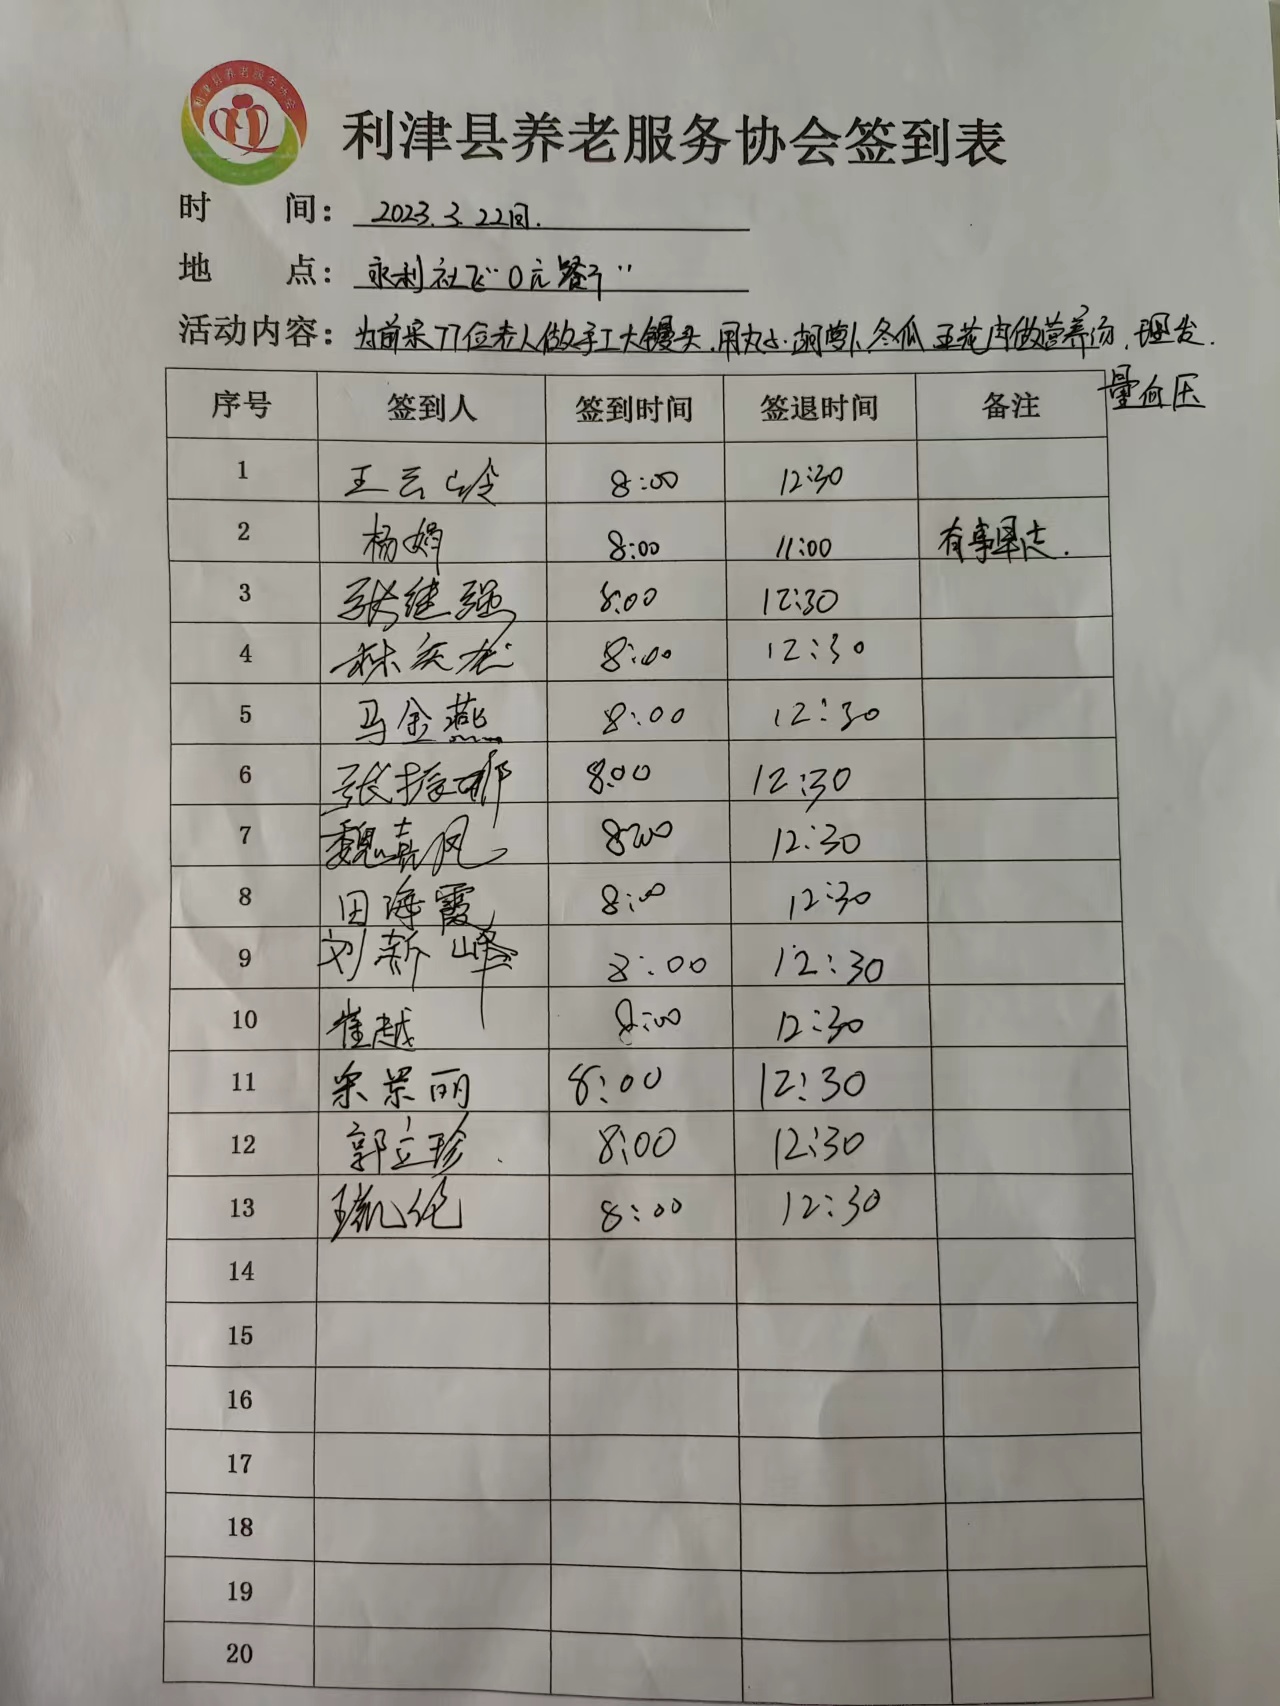 利津县养老服务协会
利津县养老服务协会签到表
时 间：2023.3.22日.
地 点：永利社区“0元餐厅”
活动内容：为前来77位老人做手工大馒头.用丸子.胡萝卜冬瓜五花肉做营养汤，理发.
量血压
序号 签到人 签到时间 签退时间 备注
1 王云岭 8:00 12:30
2 杨娟 8:00 11:00 有事早走.
3 张继强 8:00 12:30
4 林庆龙 8:00 12:30
5 马金燕 8:00 12:30
6 张振娜 8:00 12:30
7 魏嘉凤 8:00 12:30
8 田海霞 8:00 12:30
9 刘新峰 8:00 12:30
10 崔越 8:00 12:30
11 宋景丽 8:00 12:30
12 郭立珍 8:00 12:30
13 8:00 12:30
14
15
16
17
18
19
20